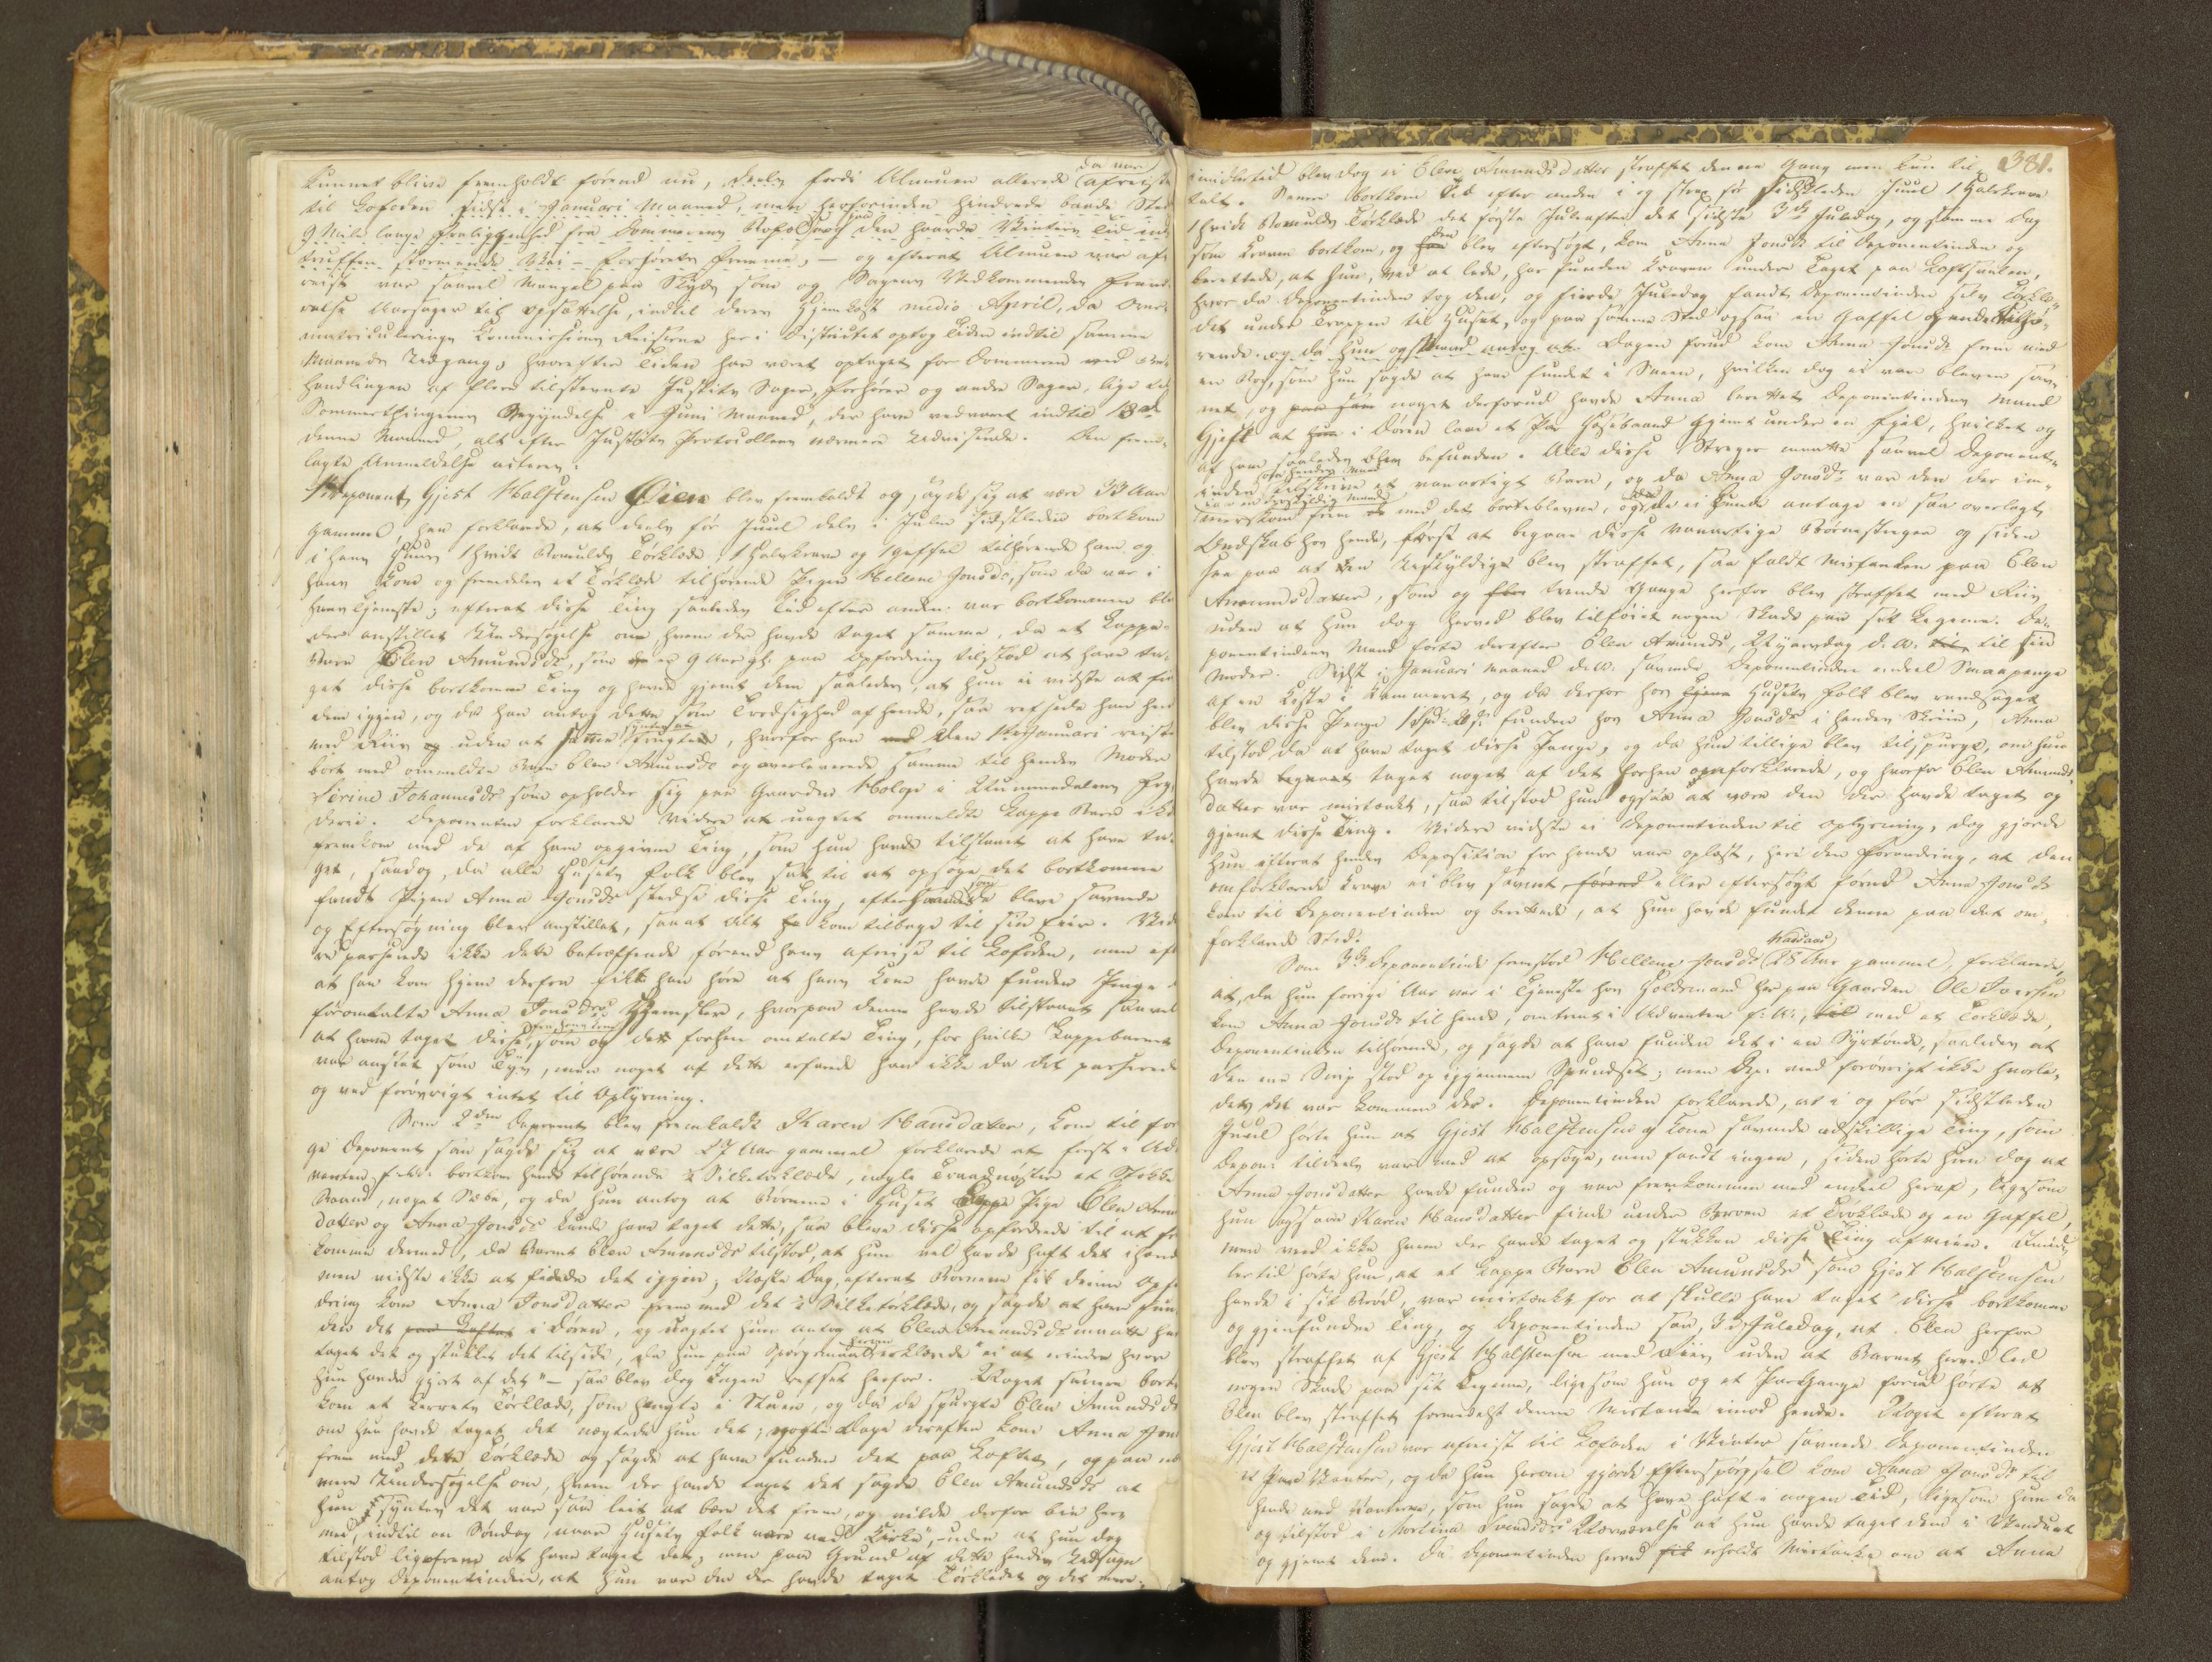 kunnet blive fremholdt førend nu, deels fordi Almuen allerede da var afreist
til Lofoden sidst i Januari Maaned, men herforinden hindrede baade Sted
9 Mile lange fraliggenhed fra Dommerens Bopæl og paa den haarde Vinters Tid ind
truffen stormende Veir Forhørets fremme, og efterat Almuen var af
reist var saavel Mangel paa Skyds som og Sagens Vedkommendes fravæ
relse Aarsagen til Opsættelse, indtil deres Hjemkost medio April, da Om
matriculerings Commissions Reiserne her i Districtet optog Tiden indtil samme
Maaneds Udgang, hvorefter Tiden har været optaget for Dommeren ved Be
handlingen af flere tilstævnte Justits Sager, Forhører og andre Sager, lige ved
Sommerthingenes Begyndelse i Juni Maaned, der have vedvaret indtil 13de
denne Maaned, alt efter Justits Protocollens nærmere Udvisende. Den frem
lagte Anmeldelse acteres.
1ste Deponent Gjest Halstensen Øien blev fremkaldt og sagde sig at være 33 Aar
gammel, han forklarede, at deels før Juul deels i Julen sidstleden bortkom
i hans Huus 1 hvidt Bomulds Tørklæde, 1 Halskrave og 1 Gaffel tilhørende ham og
hans Kone og fremdeles et Tørklæde tilhørende Pigen Hellene Jonsdr, som da var i
hans Tjeneste; efterat disse Ting saaledes Tid efter anden var bortkommen blev
der anstillet Undersøgelse om hvem der havde taget samme, da et Lappe
Barn Elen Amundsdr, som er 9 Aar gl. paa Opfordring tilstod at have ta
get disse bortkomne Ting og havde gjemt dem saaledes, at hun ei vidste at finde
dem igjen, og da han antog dette som Trodsighed af hende, saa refsede han hende
med Riis uden at, hvorfor han den 1ste Januari reiste
bort med ommeldte Barn Elen Amundsdr og overleverede samme til hendes Moder
Sirine Johannesdr som opholder sig paa Gaarden Holop i Nummedalens Fog
derie. Deponenten forklarede videre at uagtet ommeldte Lappe Barn ikke
fremkom med de af ham opgivne Ting, som hun havde tilstaaet at have ta
get, saa dog, da alle Husets Folk blev sat til at opsøge det bortkomne
fandt Pigen Anna Jonsdr stedse disse Ting, efterhaanden som de bleve savnede
og Eftersøgning blev anstillet, saaat Alt kom tilbage til sin Eier. Vid
re passerede ikke dette betræffende førend hans afreise til Lofoden, men eft
at han kom hjem derfra fik han høre at hans Kone havde funden Penge i
foromtalte Anna Jonsdrs Gjemsler, hvorpaa denne havde tilstaaet saavel
at have taget disse, som og det forhen omtalte Ting, for hvilke Lappebarnet
var anseet som Tyv, men noget af dette erfarede han ikke da det passerede
og ved forøvrigt intet til Oplysning.
Som 2den Deponent blev fremkaldt Karen Hansdatter, Kone til for
ge Deponent som sagde sig at være 27 Aar gammel forklarede at først i Ad
venten f. A. bortkom hende tilhørende ½ Silketørklæde, nogle Traadnøster et Stykke
Baand, noget Sæbe, og da hun antog at Børnene i Huset Lappe Pige Elen Amu
datter og Anna Jonsdr kunde have taget dette, saa bleve disse opfordrede til at fr
komme dermed, da Barnet Elen Amundsdr tilstod, at hun vel havde haft det i Haand
men vidste ikke at finde det igjen; Næste Dag, efterat Børnene fik denne Opfo
dring kom Anna Jonsdatter frem med det ½ Silketørklæde, og sagde at have fun
den det paa Loftet i Døren, og uagtet hun antog at Elen Amundsdr maatte have
taget det og stukket det tilside, da hun paa Spørgsmaal herom erklærede "ei at erindre hvor
hun havde gjort af det" saa blev dog Ingen refset herfor. Noget senere bort
kom et Kerrets Tørklæde, som hengte i Stuen, og da de spurgte Elen Amundsdr
om hun havde taget det nægtede hun det; nogle Dage derefter kom Anna Jons
frem med dette Tørklæde og sagde at have funden det paa Loftet, og paa næ
mere Undersøgelse om, hvem der havde taget det sagde Elen Amundsdr at
hun syntes det var saa leit at bære det frem, og vilde derfor bie her
med, indtil en Søndag, naar Husets Folk vare ved Kirke", uden at hun dog
tilstod ligefrem at have taget det, men paa Grund af dette hendes Udsagn
antog Deponentinden, at hun var den der havde taget Tørklædet og det mere,
381.
imidlertid blev dog ei Elen Amundsdatter straffet denne Gang men kun til
talt. Senere bortkom Tid efter anden i og strax før sidstleden Juul 1 Halskrave
1 hvidt Bomulds Tørklæde det første Juleaften det sidste 3die Juledag, og samme Dag
som Kraven bortkom, og den blev eftersøgt, kom Anna Jonsdr til Deponentinden og
berettede, at hun, ved at lede, har funden Kraven under Taget paa Loftsvalen,
hvor da Deponentinden tog den, og fierde Juledag fandt Deponentinden selv Tørklæ
det under Trappen til Huset, og paa samme Sted ogsaa en Gaffel hende tilhø
rende. Dagen forud kom Anna Jonsdr frem med
en Bog, som hun sagde at have fundet i Sneen, hvilken dog ei var bleven sav
net, og noget derforud havde Anna berettet Deponentindens Mand
Gjest at i Døren laae et Par Hosebaand gjemt under en Fjel, hvilket og
af ham saaledes blev befunden. Alle disse Streger maatte saavel Deponent
inden som hendes Mand tilskrive et vanartigt Barn, og da Anna Jonsdr var den der im
merstem frem med det bortblevne, og de ei kunde antage en saa overlagt
Ondskab hos hende, først at begaae disse vanartige Børnestreger og siden
see paa at den Uskyldige blev straffet, saa faldt Mistanken paa Elen
Amundsdatter, som og trende Gange herfor blev straffet med Riis
uden at hun dog herved blev tilføiet nogen Skade paa sit Legeme. De
ponentindens Mand førte derefter Elen Amundsdr, Nyaarsdag d. A. til sin
Moder. Sidst i Januari Maaned d. A. savnede Deponentinden endeel Smaapenge
af en Kiste i Kammeret, og da derfor hos Husets Folk blev randsaget
blev disse Penge funden hos Anna Jonsdr i hendes Skriin, Anna
tilstod da at have taget disse Penge, og da hun tillige blev tilspurgt, om hun
havde taget noget af det forhen omforklarede, og hvorfor Elen Amunds
datter var mistænkt, saa tilstod hun ogsaa at være den der havde taget og
gjemt disse Ting. Videre vidste ei Deponentinden til Oplysning, dog gjorde
hun efterat hendes Deposition for hende var oplæst, heri den Forandring, at den
omforklarede Krave ei blev savnet eller eftersøgt førend Anna Jonsdr
kom til Deponentinden og berettede, at hun havde fundet denne paa det om
forklarede Sted.
Som 3die Deponentinde fremstod Hellene Jonsdr 28 Aar gammel, forklarede,
at, da hun forrige Aar var i Tjeneste hos Holdsmand her paa Gaarden Ole Iversen
kom Anna Jonsdr til hende, omtrent i Adventen f. A., med et Tørklæde,
Deponentinden tilhørende, og sagde at have funden det i en Syrtønde, saaledes at
den ene Snip stod op igjennem Spundset; men Dep. ved forøvrigt ikke hvorle
des det var kommen der. Deponentinden forklarede, at i og før sidstleden
Juul hørte hun at Gjest Halstensen og Kone savnede adskillige Ting, som
Depon. tildeels vare med at opsøge, men fandt ingen, siden hørte hun dog at
Anna Jonsdatter havde funden og var fremkommen med endeel heraf, ligesom
hun og saae Karen Hansdatter finde under Broen et Tørklæde og en Gaffel,
men veed ikke hvem der havde taget og stukken disse Ting af veien. Imid
lertid hørte hun, at et Lappe Barn Elen Amundsdr som Gjest Halstensen
havde i sit Brød, var mistænkt for at skulle have taget disse bortkomne
og gjenfundne Ting, og Deponentinden saae, 3die Juledag, at Elen herfor
blev straffet af Gjest Halstensen med Riis uden at Barnet herved led
nogen Skade paa sit Legeme, ligesom hun og et Par Gange forud hørte at
Elen blev straffet formedelst denne Mistanke imod hende. Noget efterat
Gjest Halstensen var afreist til Lofoden i Vinter savnede Deponentinden
et Par Vanter, og da hun herom gjorde Efterspørgsel kom Anna Jonsdr til
hende med Vanterne, som hun sagde at have haft i nogen Tid, ligesom hun da
og tilstod i Martina Nærværelse at hun havde taget dem i
og gjemt dem. Da Deponentinden herved erholdt Mistanke om at Anna